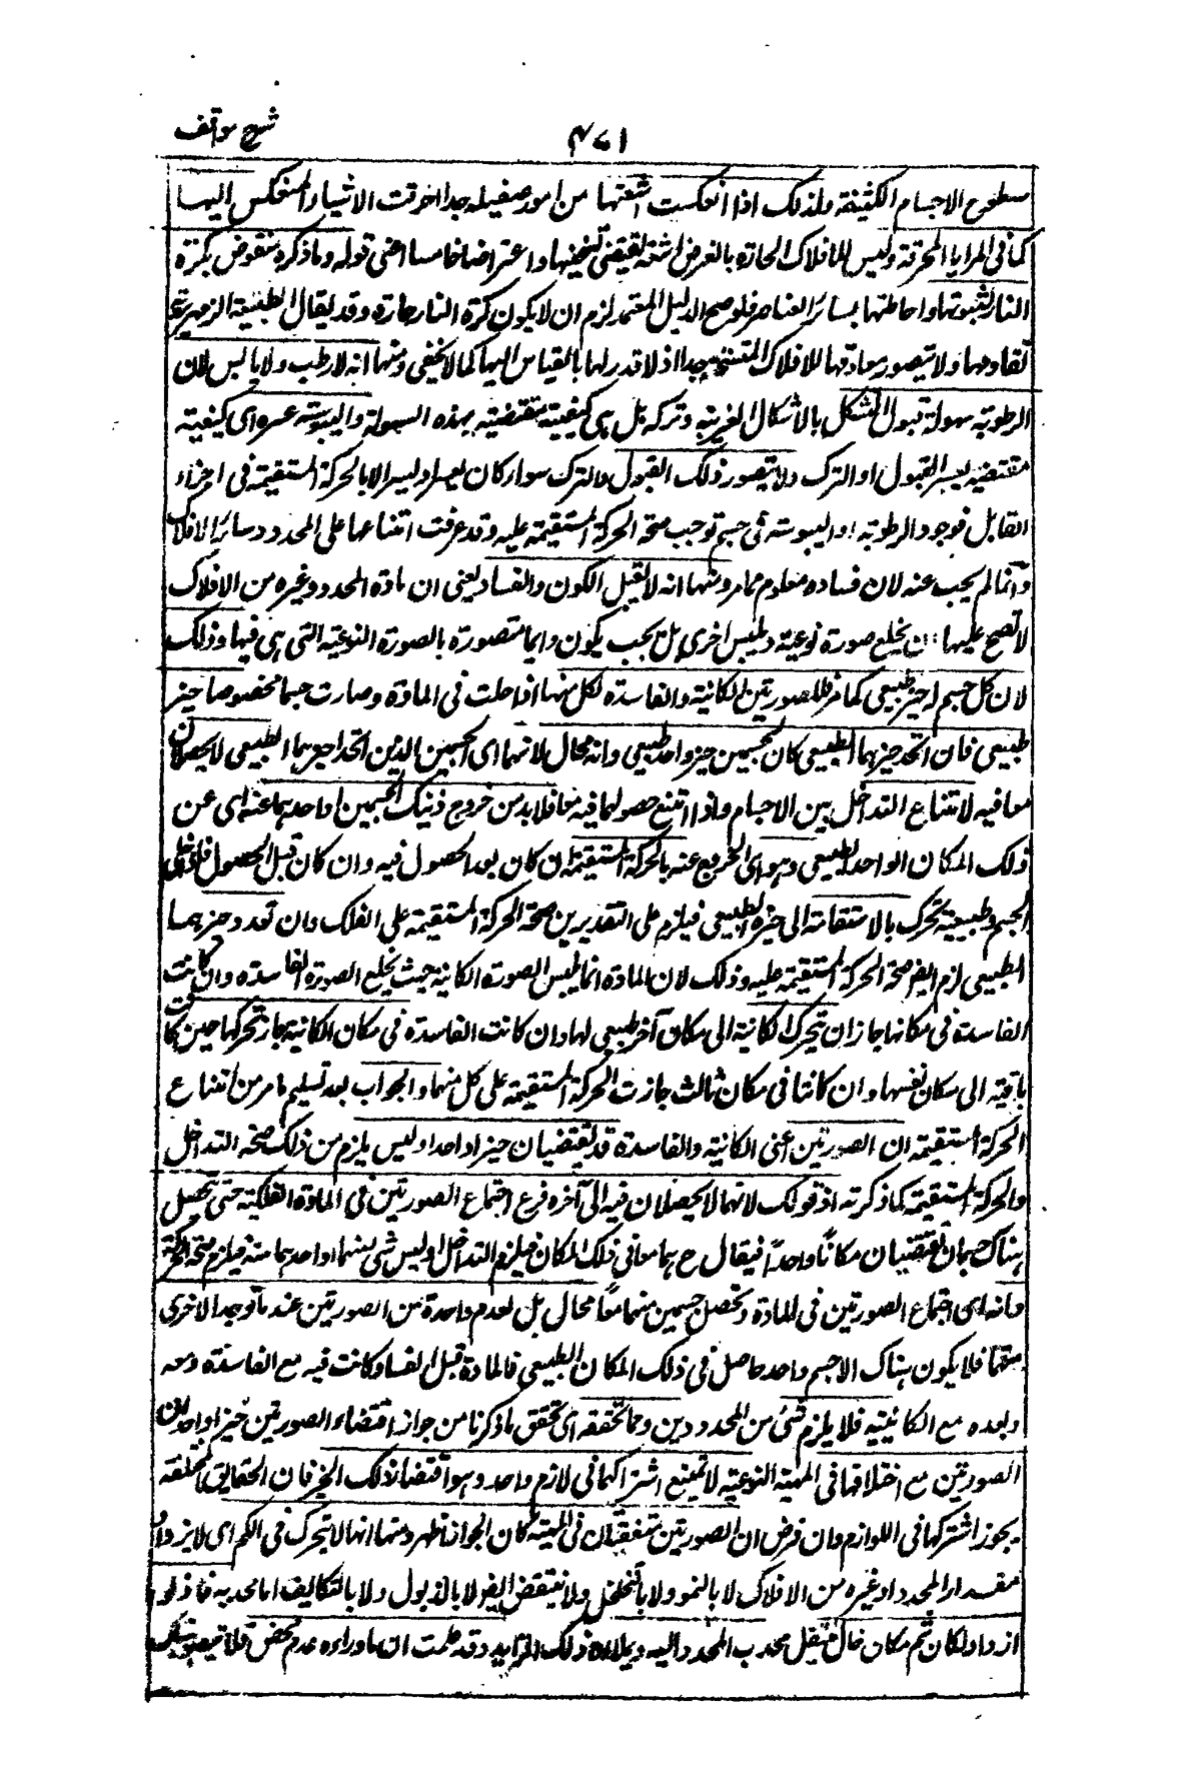 شرح مواقف
۴۷۱
سطوح الاجسام الكثيفة ولذلك اذا انعكست اشعتها من امور صقيلة جدا احرقت الاشياء المنعكس اليها
كما فى المرايا المحرقة وليس للافلاك الحارة بالفرض اشعة تقتضى تسخينها واعترضنا خامسا اعنى قوله وما ذكره منقوض بكرة
النار لثبوتها واحاطتها بسائر العناصر فلو صح الدليل المعتمد لزم ان لا يكون كرة النار حارة وقد يقال الطبقة الزمهريرية
تقاومها ولا يتصور معاوقتها للافلاك المتسخنة جدا اذ لا قدر لها بالقياس اليها كما لا يخفى ومنها انه لا رطب ولا يابس لان
الرطوبة سهولة قبول التشكل بالاشكال الغريبة وتركه بل هى كيفية مقتضية بهذه السهولة واليبوسة عسره اى كيفية
مقتضية لعسر القبول او الترك ولا يتصور ذلك القبول والترك سواء كان بعسر او ليسر الا بالحركة المستقيمة فى اجزاء
القابل فوجود الرطوبة او اليبوسة فى جسم توجب صحة الحركة المستقيمة عليه وقد عرفت امتناعها على المحدد وسائر الافلاك
وانما لم يجب عنه لان فساده معلوم مما مر ومنها انه لا يقبل الكون والفساد يعنى ان مادة المحدد وغيره من الافلاك
لا تصح عليها ان يخلع صورة نوعية ويلبس اخرى بل يجب يكون دايما متصورة بالصورة النوعية التى هى فيها وذلك
لان كل جسم له حيز طبيعى كما مر فللصورتين الكائنة والفاسدة لكل منهما اذا حلت فى المادة وصارت جسما مخصوصا حيز
طبيعى فان اتحد حيزهما الطبيعى كان لجسمين حيز واحد طبيعى وانه محال لانهما اى الجسمين الذين اتحد حيزهما الطبيعى لا يحصلان
معا فيه لامتناع التداخل بين الاجسام واذا امتنع حصولهما فيه معا فلابد من خروج ذينك الجسمين او احدهما عنه اى عن
ذلك المكان الواحد الطبيعى وهو اى الخروج عنه بالحركة المستقيمة ان كان بعد الحصول فيه وان كان قبل الحصول فاذا خلى
الجسم وطبيعته تحرك بالاستقامة الى حيزه الطبيعى فيلزم على التقديرين صحة الحركة المستقيمة على الفلك وان تعدد حيزهما
الطبيعى لزم ايضا صحة الحركة المستقيمة عليه وذلك لان المادة انما يلبس الصورة الكائنة حيث يخلع الصورة الفاسدة وان كانت
الفاسدة فى مكانها جاز ان تتحرك الكائنة الى مكان آخر طبيعى لها وان كانت الفاسدة فى مكان الكائنة جاز تحركها حين كانت
باقية الى مكان نفسها وان كانتا فى مكان ثالث جازت الحركة المستقيمة على كل منهما والجواب بعد تسليم ما مر من امتناع
الحركة المستقيمة ان الصورتين اعنى الكائنة والفاسدة قد تقتضيان حيزا واحدا وليس يلزم من ذلك صحة التداخل
والحركة المستقيمة كما ذكرته اذ قولك لانهما لا يحصلان فيه الى آخره فرع اجتماع الصورتين فى المادة الفلكية حتى يحصل
هناك جسمان يقتضيان مكانا واحدا فيقال ح هما معا فى ذلك المكان فيلزم التداخل او ليس شئ منهما او احدهما منه فيلزم صحة الحركة
وانه اى اجتماع الصورتين فى المادة وتحصل جسمين منهما معا محال بل لعدم واحدة من الصورتين عند ما توجد الاخرى
منهما فلا يكون هناك الا جسم واحد حاصل فى ذلك المكان الطبيعى فالمادة قبل الفساد كانت فيه مع الفاسدة ومعه
وبعده مع الكائنة فلا يلزم شئ من المحذورين ومما يحققه اى تحقق ما ذكرنا من جواز اقتضاء الصورتين حيزا واحدا ان
الصورتين مع اختلافهما فى المهية النوعية لا يمتنع اشتراكهما فى لازم واحد وهو اقتضاء ذلك الحيز فان الحقايق المختلفة
يجوز اشتركها فى اللوازم وان فرض ان الصورتين متفقتان فى المهية كان الجواز اظهر ومنها انها لا يتحرك فى الكم اى لا يزداد
مقدار المحدد او غيره من الافلاك لا بالنمو ولا بالتخلخل ولا ينتقض ايضا لا بالذبول ولا بالتكاثف اما محدبه فاذ لو
ازداد لكان ثم مكان خال ينتقل محدب المحدد اليه ويملاه ذلك المزايد وقد علمت ان ما وراءه عدم محض فلا يتصور هناك